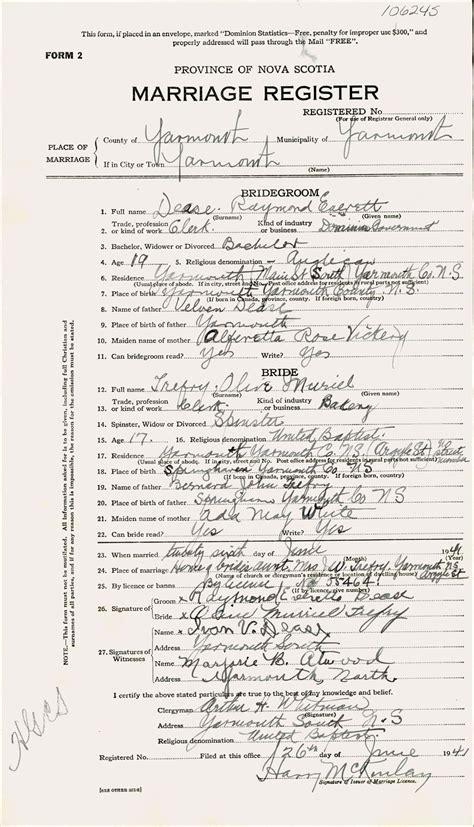 106245
This form, if placed in an envelope, marked "Dominion Statistics—Free, penalty for improper use $300," and
properly addressed will pass through the Mail "FREE".
FORM 2
PROVINCE OF NOVA SCOTIA
MARRIAGE REGISTER
REGISTERED No
(For use of Registrar General only)
PLACE OF MARRIAGE
County of Yarmouth Municipality of Yarmouth
If in City or Town Yarmouth
(Name)
BRIDEGROOM
1. Full name Dease Raymond Everett
(Surname) (Given name)
2. Trade, profession or kind of work Clerk Kind of industry or business Dominion Government
3. Bachelor, Widower or Divorced Bachelor
4. Age 19 5. Religious denomination Anglican
6. Residence Yarmouth Main St South Yarmouth Co. N.S.
(Usual place of abode. If in city, street and No. Post office address for residents in rural parts not sufficient)
7. Place of birth Yarmouth Yarmouth County N.S.
(If born in Canada, province, county. If foreign born, country)
8. Name of father Dease
9. Place of birth of father Yarmouth
10. Maiden name of mother Rose Vickery
11. Can bridegroom read? Yes Write? Yes
BRIDE
12. Full name Trefry Olive Muriel
(Surname) (Given name)
13. Trade, profession or kind of work Clerk Kind of industry or business Bakery
14. Spinster, Widow or Divorced Spinster
15. Age 17. 16. Religious denomination United Baptist
17. Residence Yarmouth Yarmouth Co. N.S. Argyle St
(Usual place of abode. If in city, street and No. Post office address for residents in rural parts not sufficient)
18. Place of birth Springhaven Yarmouth Co N S
(If born in Canada, province, county. If foreign born, country)
19. Name of father Bernard John Trefry
20. Place of birth of father Yarmouth Co N S
21. Maiden name of mother Ada May White
22. Can bride read? Yes Write? Yes
23. When married twenty sixth day of June 1941
(Month)
24. Place of marriage Home of bride's aunt, Mrs W. Trefry, Yarmouth NS Argyle St
(Name of church or clergyman's residence or location of dwelling house)
25. By licence or banns By licence No
(If by licence, give number)
26. Signature of
Groom x Raymond Everett Dease
Bride x Olive Muriel Trefry
27. Signatures of Witnesses
Name x Ivan V. Dease
Address Yarmouth South
Name x Marjorie B. Atwood
Address Yarmouth North
I certify the above stated particulars are true to the best of my knowledge and belief.
Clergyman Arthur H. Whitman
(Signature)
Address Yarmouth South N.S
Religious denomination United Baptist
Registered No. Filed at this office 26th day of June 1941
Harry McKinlay
Signature of Issuer of Marriage Licence.
[SEE OTHER SIDE]
NOTE.—This form must not be mutilated. All information asked for is to be given, including full Christian and
surnames of all parties, and if for any reason this is impossible, the reason for the omission must be stated.